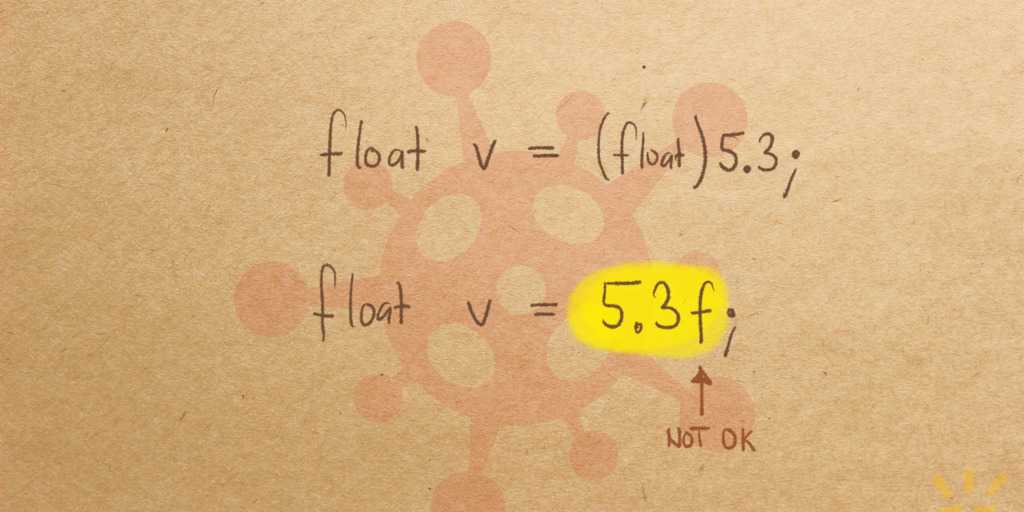 float v = (float)5.3;
float v = 5.3f;
NOT OK